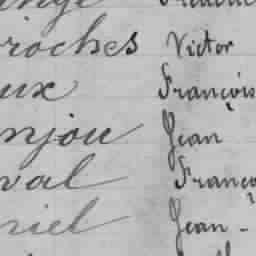 roches Victor
ux François
njou Jean
val Franço
riel Jean -